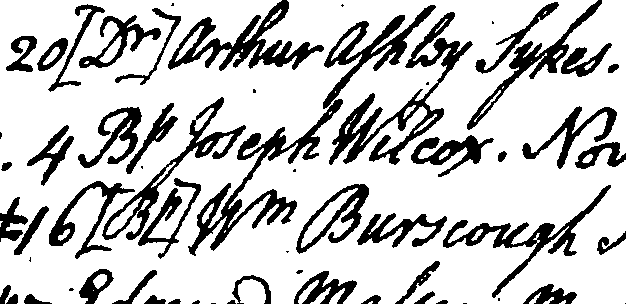 20 [Dr] Arthur Ashley Sykes.
. 4 Bp Joseph Wilcox. Nov
16 [Bp] Wm Burscough